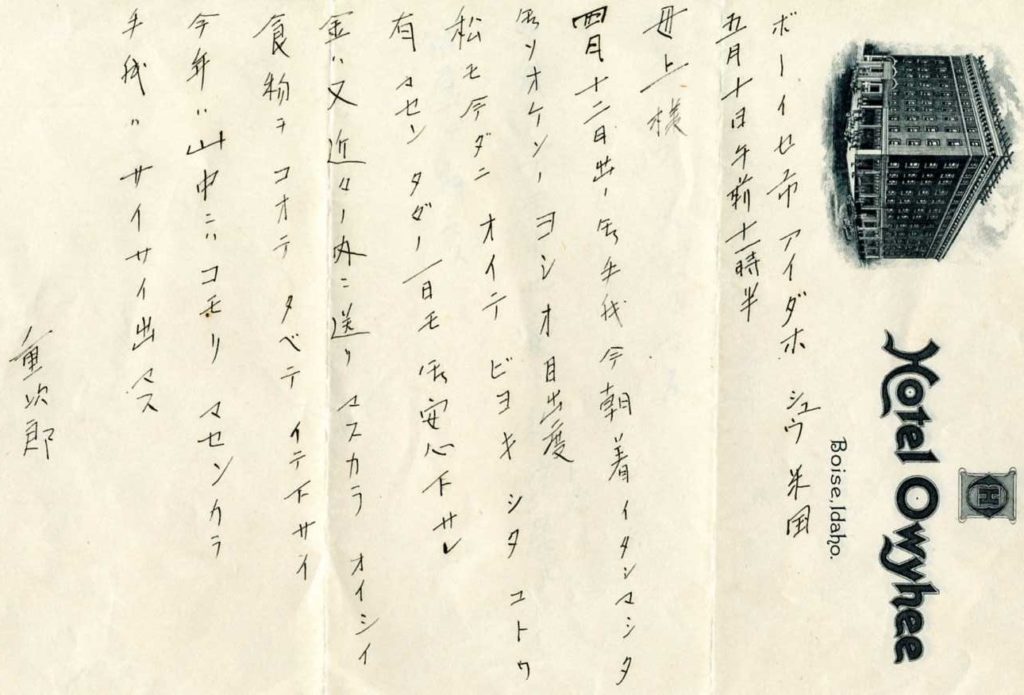 H
Hotel Owyhee
Boise, Idaho.
ボーイセ市 アイダホ シュウ 米国
五月十日午前十一時半
母上様
四月十二日出ノ 御手紙 今朝着イタシマシタ
御ソオケンノ ヨシ オ目出度
松モ今ダニ オイテ ビヨキ シタ コトワ
有マセン タダノ一日モ 御安心下サレ
金ハ又 近々ノ内ニ送リ マスカラ オイシイ
食物ヲ コオテ タベテ イテ下サイ
今年ハ 山中ニハコモリ マセンカラ
手紙ハ サイサイ出マス
重次郎